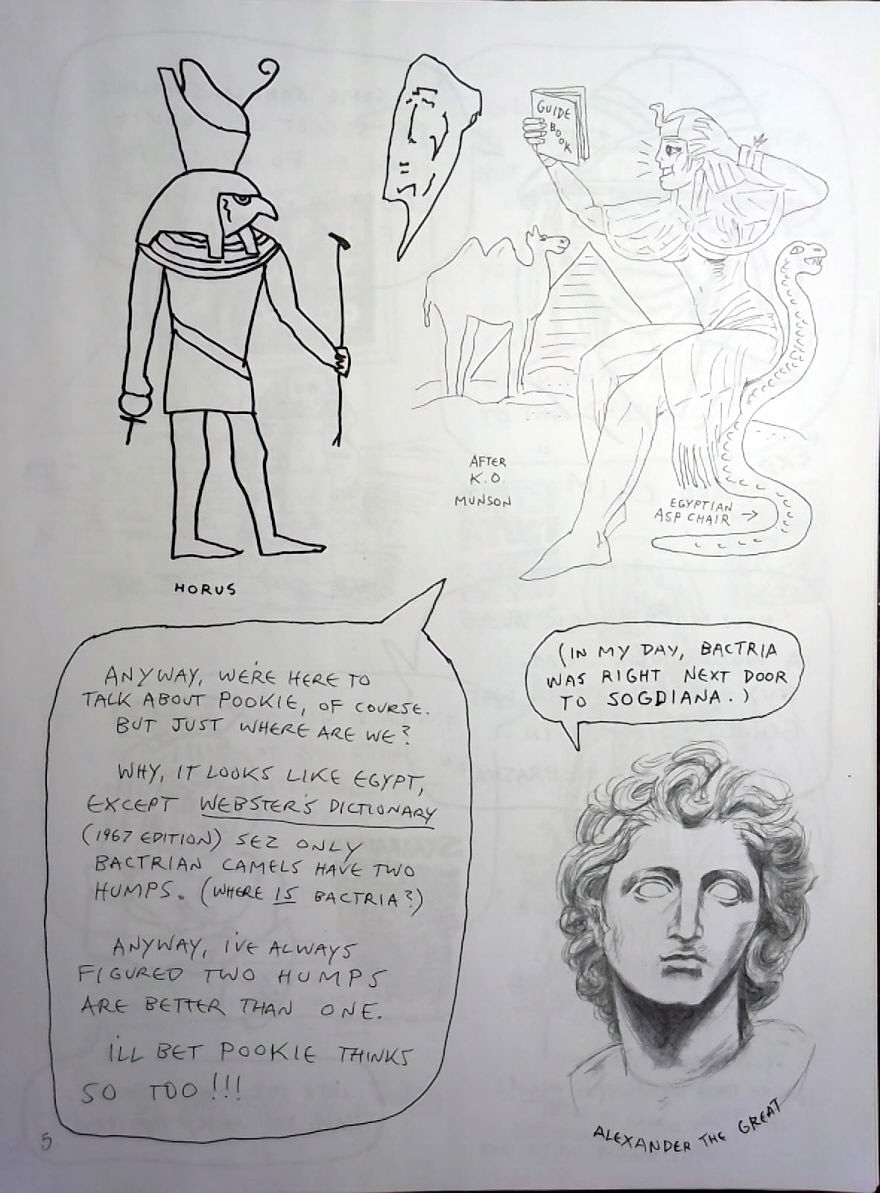 GUIDE
BOOK
AFTER
K.O.
MUNSON
EGYPTIAN
ASP CHAIR →
HORUS
ANYWAY, WE'RE HERE TO
TALK ABOUT POOKIE, OF COURSE.
BUT JUST WHERE ARE WE?
WHY, IT LOOKS LIKE EGYPT,
EXCEPT WEBSTER'S DICTIONARY
(1967 EDITION) SEZ ONLY
BACTRIAN CAMELS HAVE TWO
HUMPS. (WHERE IS BACTRIA?)
ANYWAY, I'VE ALWAYS
FIGURED TWO HUMPS
ARE BETTER THAN ONE.
I'LL BET POOKIE THINKS
SO TOO!!!
(IN MY DAY, BACTRIA
WAS RIGHT NEXT DOOR
TO SOGDIANA.)
ALEXANDER THE GREAT
5